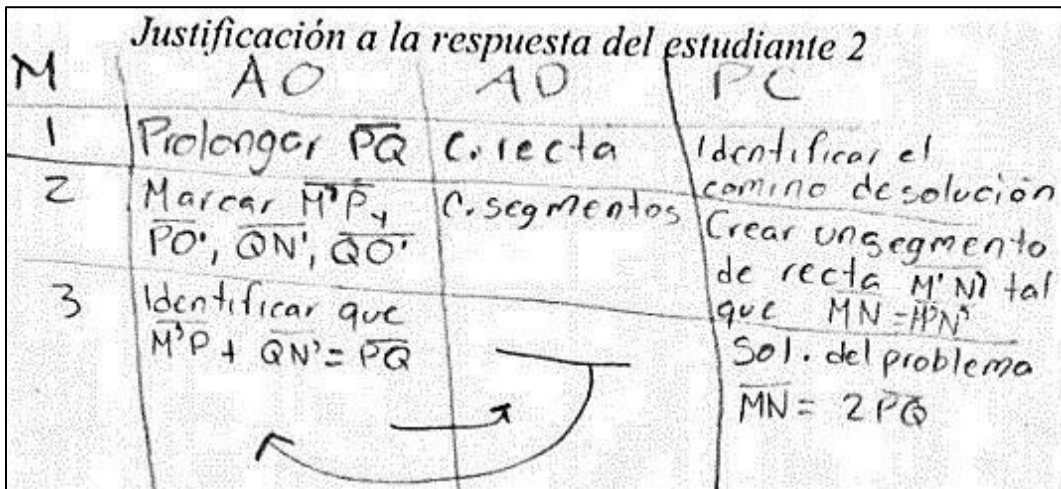 Justificación a la respuesta del estudiante 2
M AO AD PC
1 Prolongar PQ C. recta Identificar el
camino de solución
2 Marcar M'P y C. segmentos Crear un segmento
PO', QN', QO' de recta M'N' tal
que MN = M'N'
3 Identificar que Sol. del problema
M'P + QN' = PQ MN = 2PQ